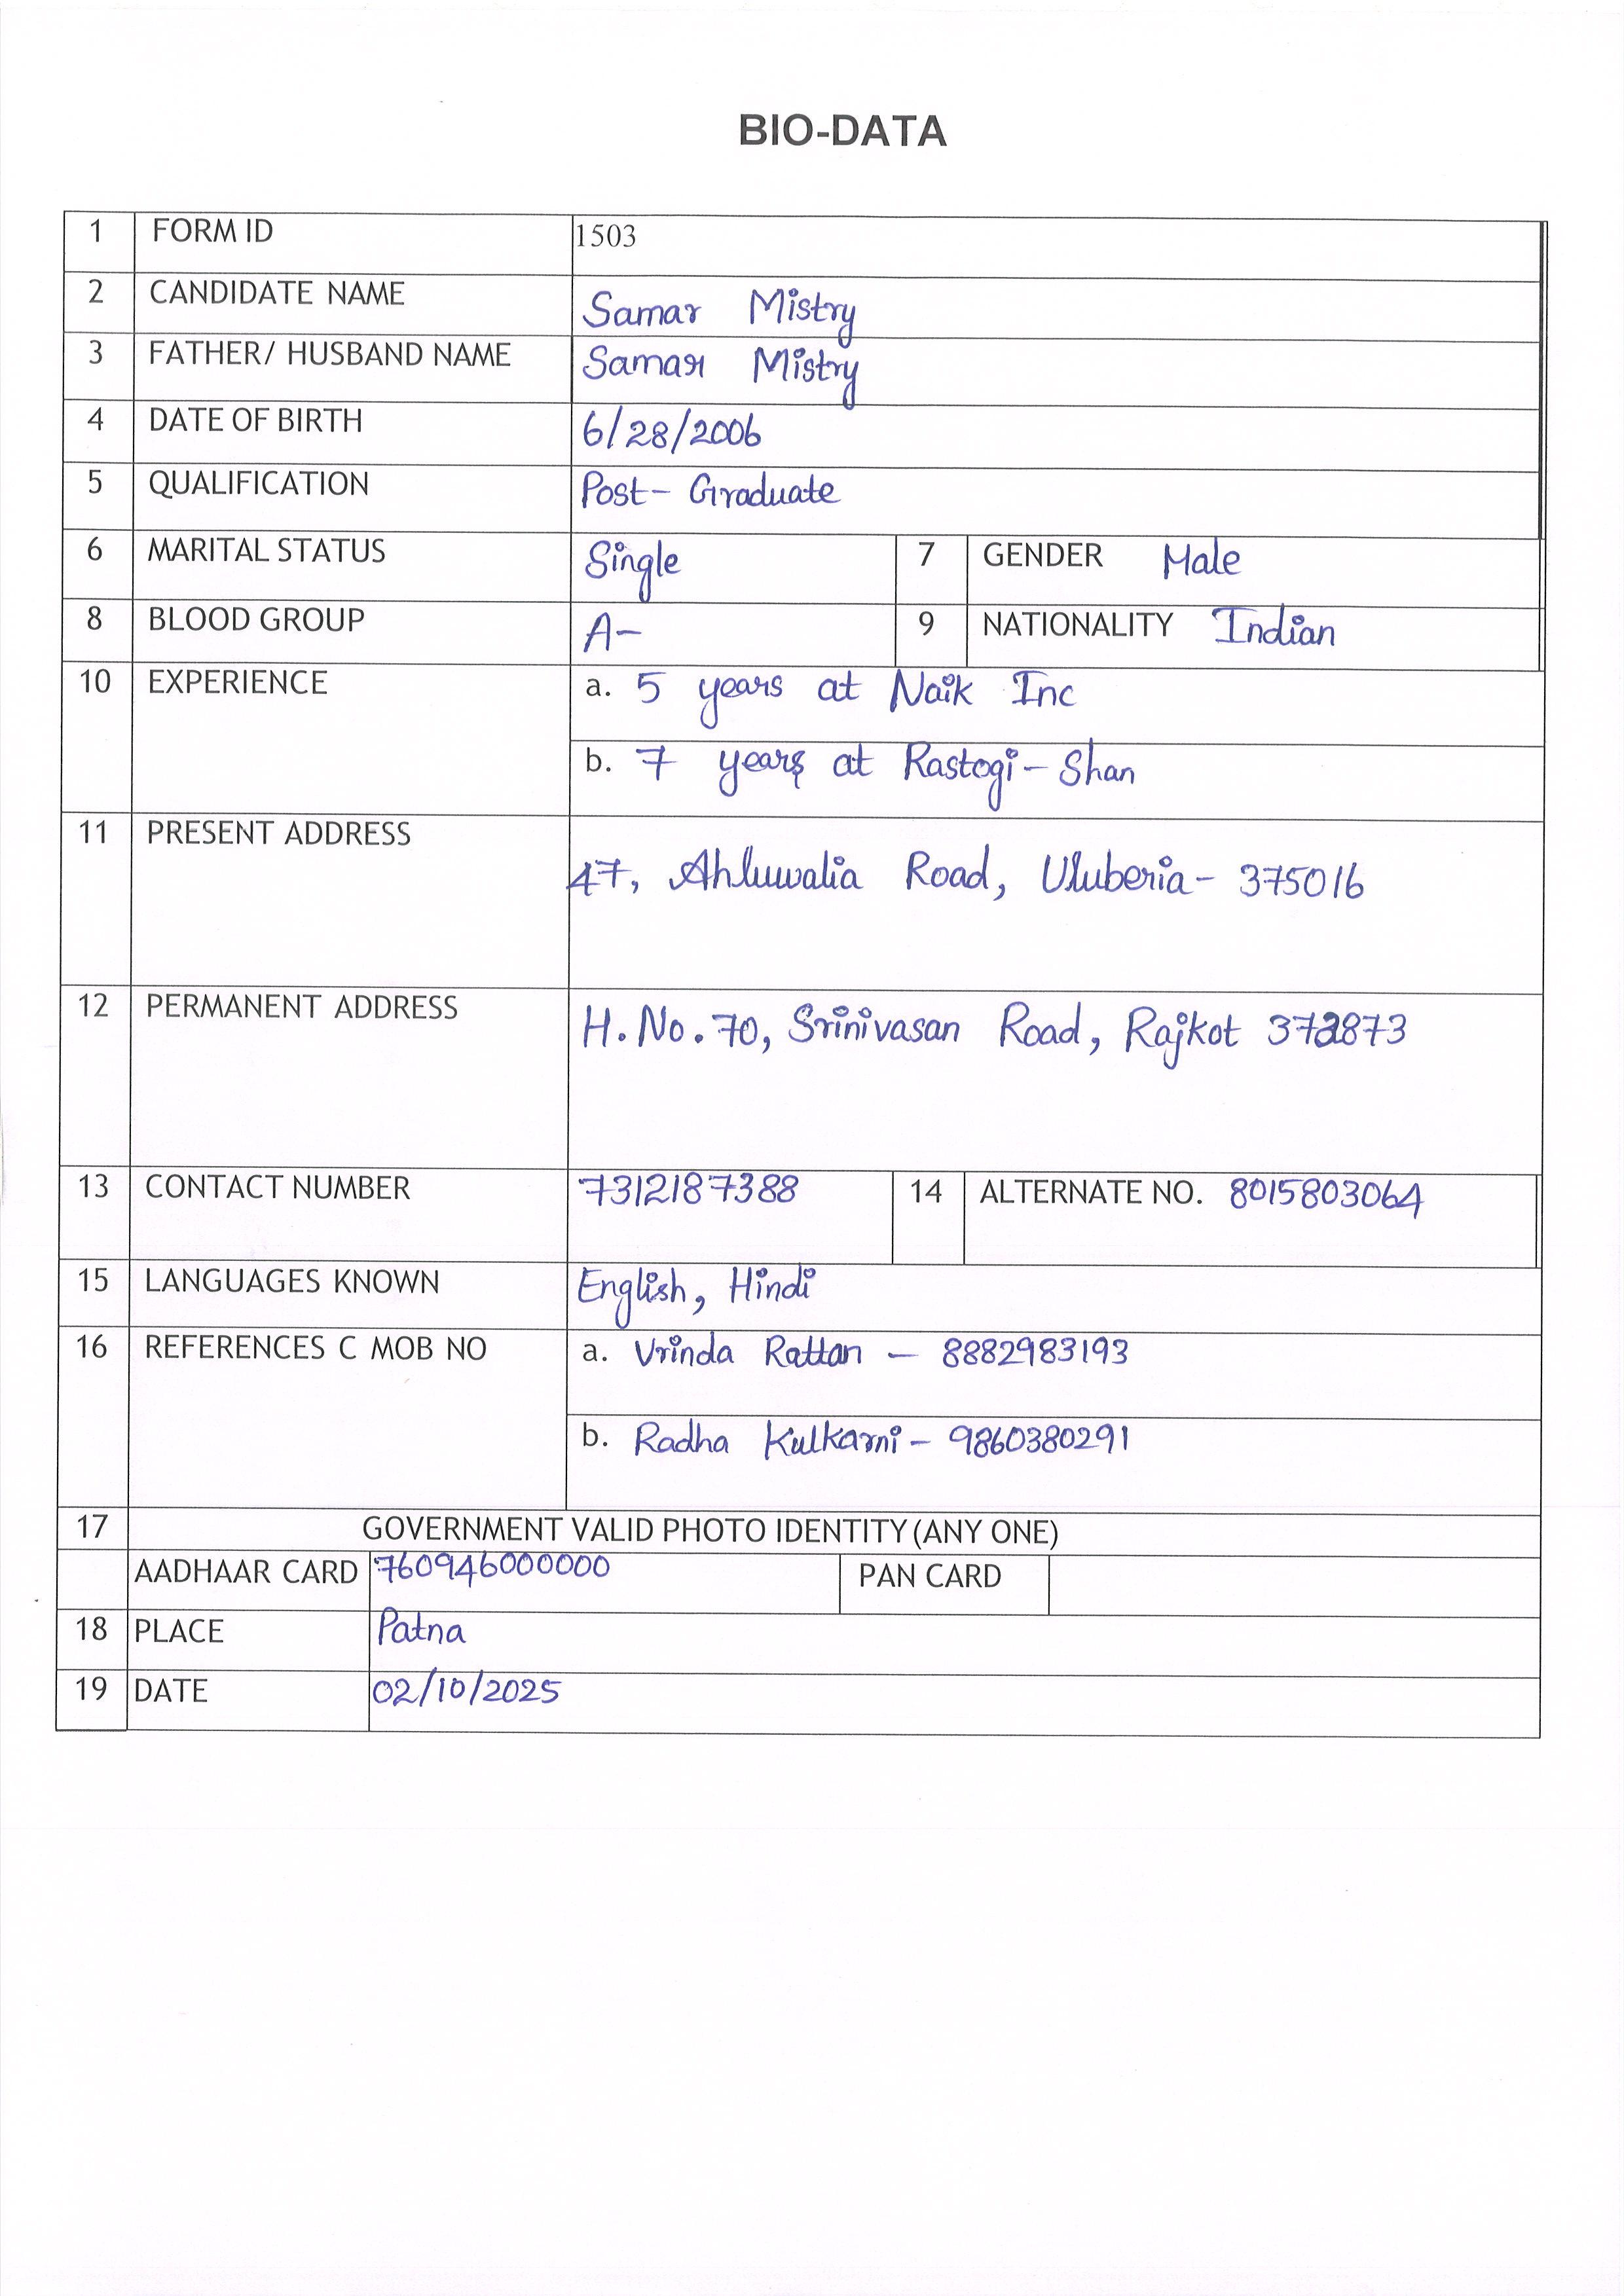 BIO-DATA
1 FORM ID 1503
2 CANDIDATE NAME Samar Mistry
3 FATHER/ HUSBAND NAME Samar Mistry
4 DATE OF BIRTH 6/28/2006
5 QUALIFICATION Post- Graduate
6 MARITAL STATUS Single 7 GENDER Male
8 BLOOD GROUP A- 9 NATIONALITY Indian
10 EXPERIENCE a. 5 years at Naik Inc
b. 7 years at Rastogi- Shan
11 PRESENT ADDRESS
47, Ahluwalia Road, Uluberia- 375016
12 PERMANENT ADDRESS H. No. 70, Srinivasan Road, Rajkot 372873
13 CONTACT NUMBER 7312187388 14 ALTERNATE NO. 8015803064
15 LANGUAGES KNOWN English, Hindi
16 REFERENCES C MOB NO a. Vrinda Rattan - 8882983193
b. Radha Kulkarni - 9860380291
17 GOVERNMENT VALID PHOTO IDENTITY (ANY ONE)
AADHAAR CARD 760946000000 PAN CARD
18 PLACE Patna
19 DATE 02/10/2025